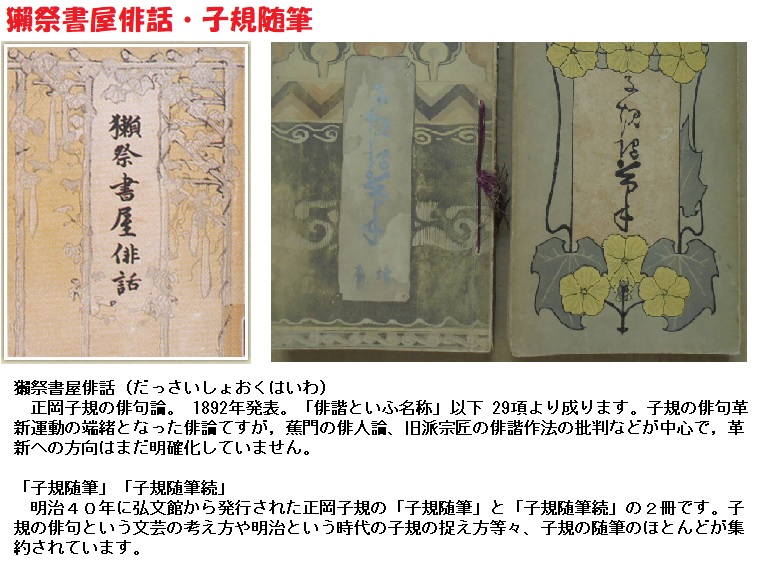 獺祭書屋俳話・子規随筆
獺祭書屋俳話
子規随筆
子規随筆
獺祭書屋俳話（だっさいしょおくはいわ）
　正岡子規の俳句論。 1892年発表。「俳諧といふ名称」以下 29項より成ります。子規の俳句革
新運動の端緒となった俳論てすが，蕉門の俳人論、旧派宗匠の俳諧作法の批判などが中心で，革
新への方向はまだ明確化していません。
「子規随筆」「子規随筆続」
　明治４０年に弘文館から発行された正岡子規の「子規随筆」と「子規随筆続」の２冊です。子
規の俳句という文芸の考え方や明治という時代の子規の捉え方等々、子規の随筆のほとんどが集
約されています。